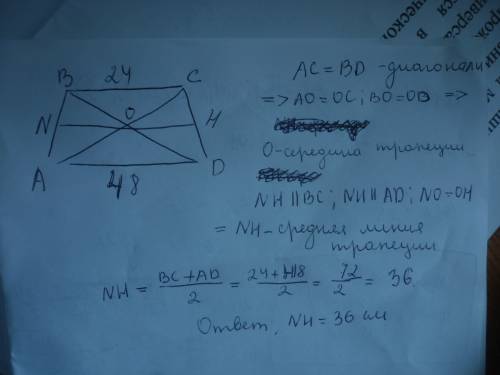 B 24 C
O
N H
A D
48
AC = BD - диагонали
=> AO = OC; BO = OD =>
O - середина трапеции
NH || BC; NH || AD; NO = OH
= NH - средняя линия
трапеции
NH = BC + AD / 2 = 24 + 48 / 2 = 72 / 2 = 36
Ответ, NH = 36 см